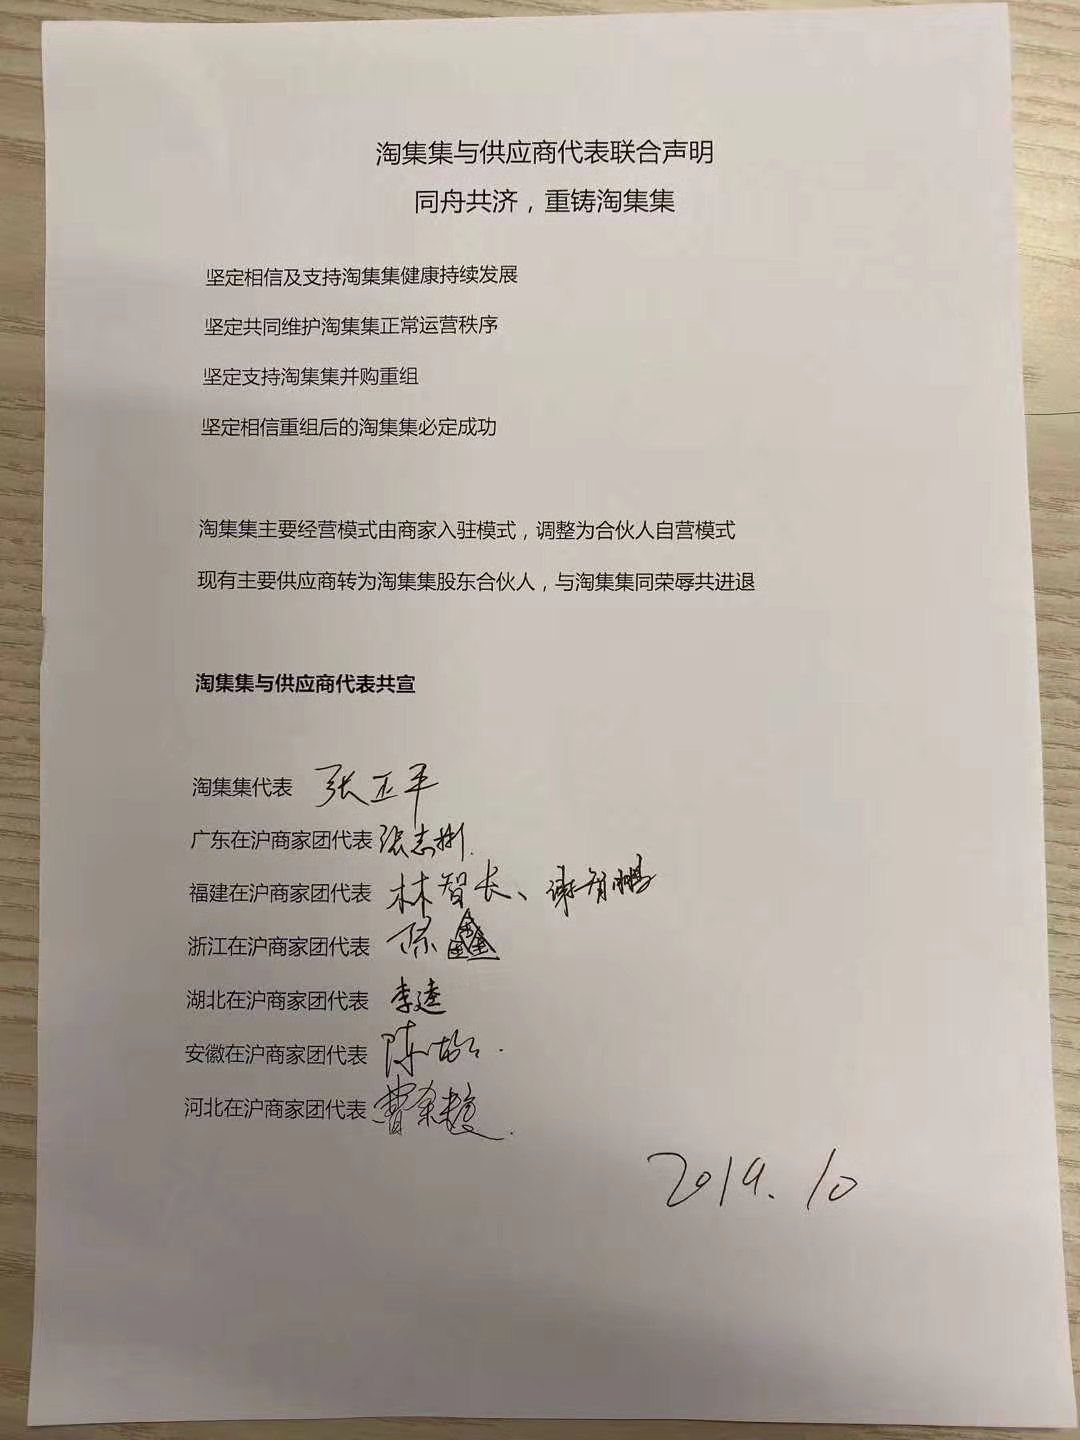 淘集集与供应商代表联合声明
同舟共济，重铸淘集集
坚定相信及支持淘集集健康持续发展
坚定共同维护淘集集正常运营秩序
坚定支持淘集集并购重组
坚定相信重组后的淘集集必定成功
淘集集主要经营模式由商家入驻模式，调整为合伙人自营模式
现有主要供应商转为淘集集股东合伙人，与淘集集同荣辱共进退
淘集集与供应商代表共宣
淘集集代表 张正平
广东在沪商家团代表 张志彬
福建在沪商家团代表 林智长、谢智鹏
浙江在沪商家团代表 陈鑫
湖北在沪商家团代表 李
安徽在沪商家团代表 陈
河北在沪商家团代表 曹
2019.10